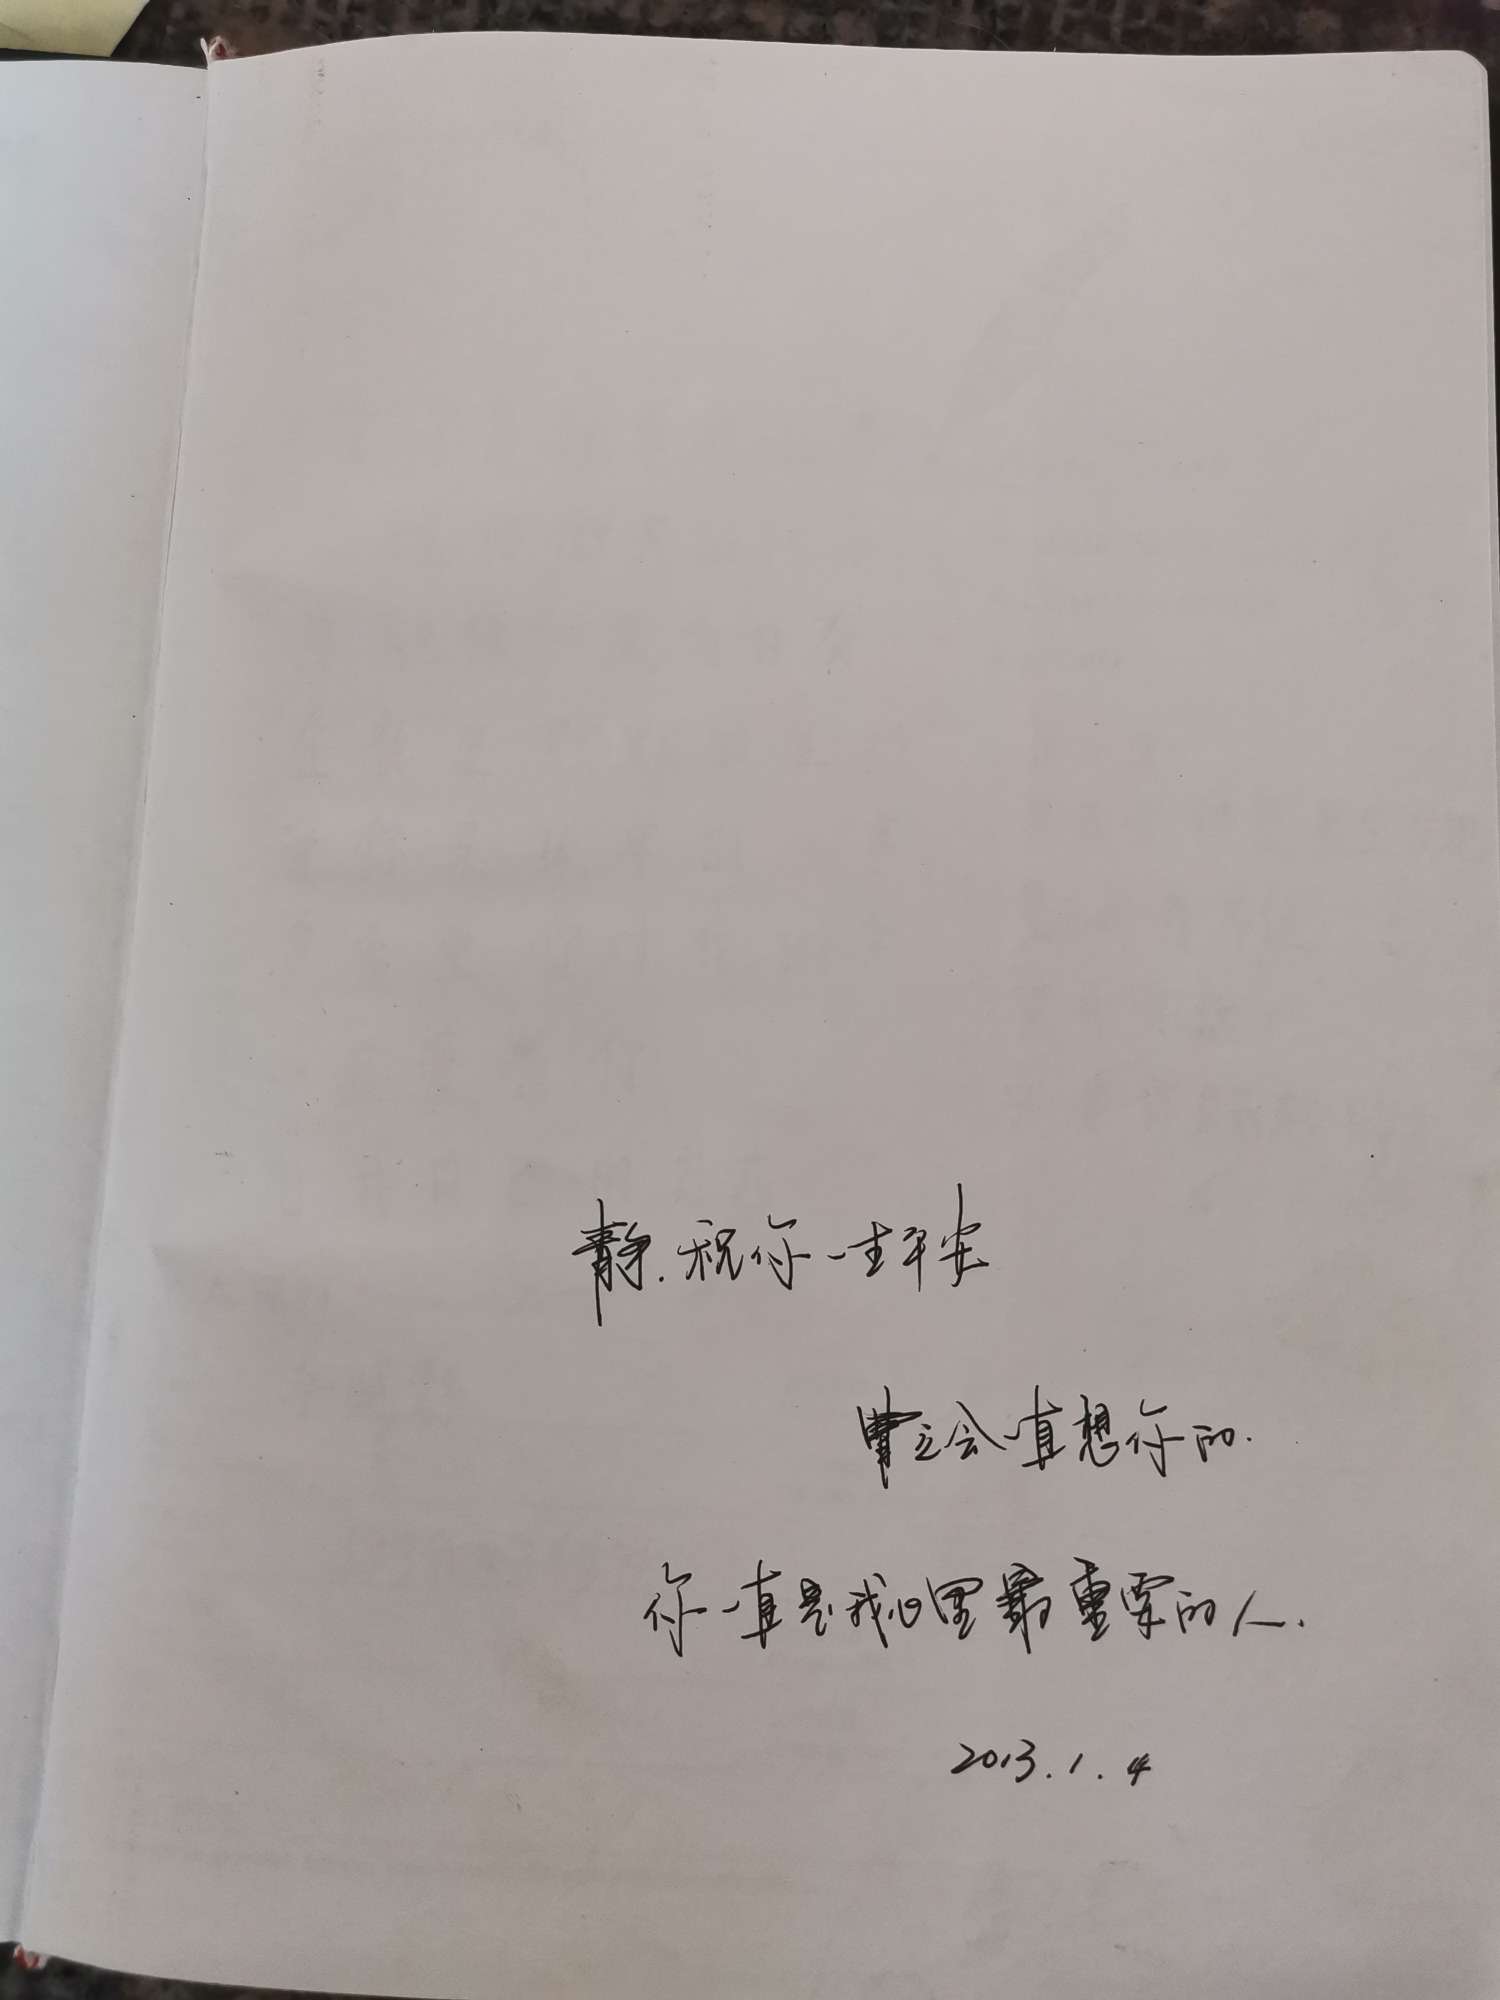 静.祝你一生平安
会一直想你的.
你一直是我心里最重要的人.
2013.1.4